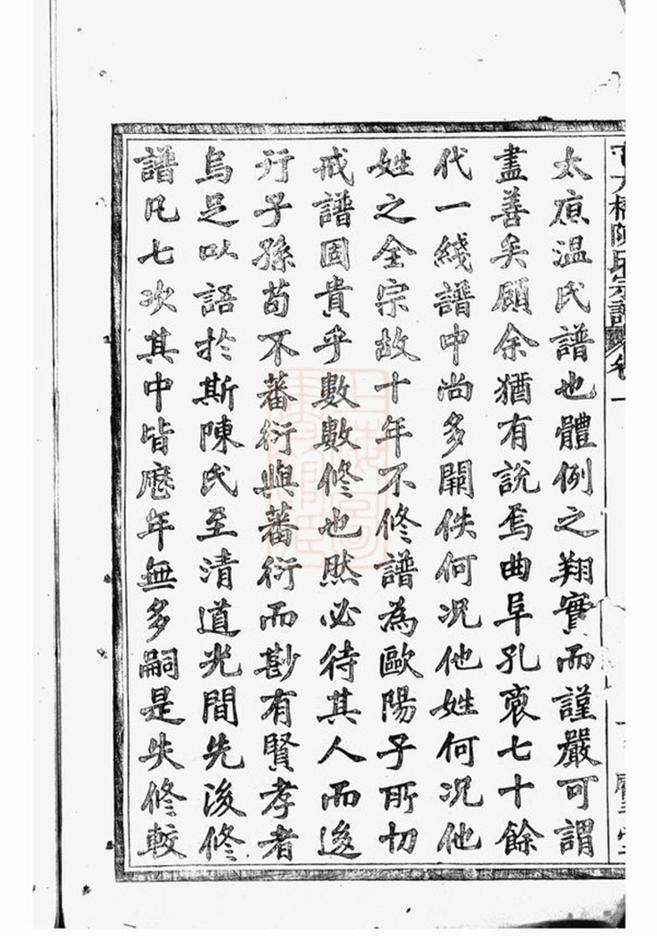 橋陳氏宗譜 卷一
太原温氏譜也體例之翔實而謹嚴可謂
盡善矣顧余猶有說焉曲阜孔裔七十餘
代一綫譜中尚多闕佚何况他姓何况他
姓之全宗故十年不修譜為歐陽子所切
戒譜固貴乎數數修也然必待其人而後
行子孫苟不蕃衍與蕃衍而尠有賢孝者
烏足以語於斯陳氏至清道光間先後修
譜凡七次其中皆歷年無多嗣是失修較